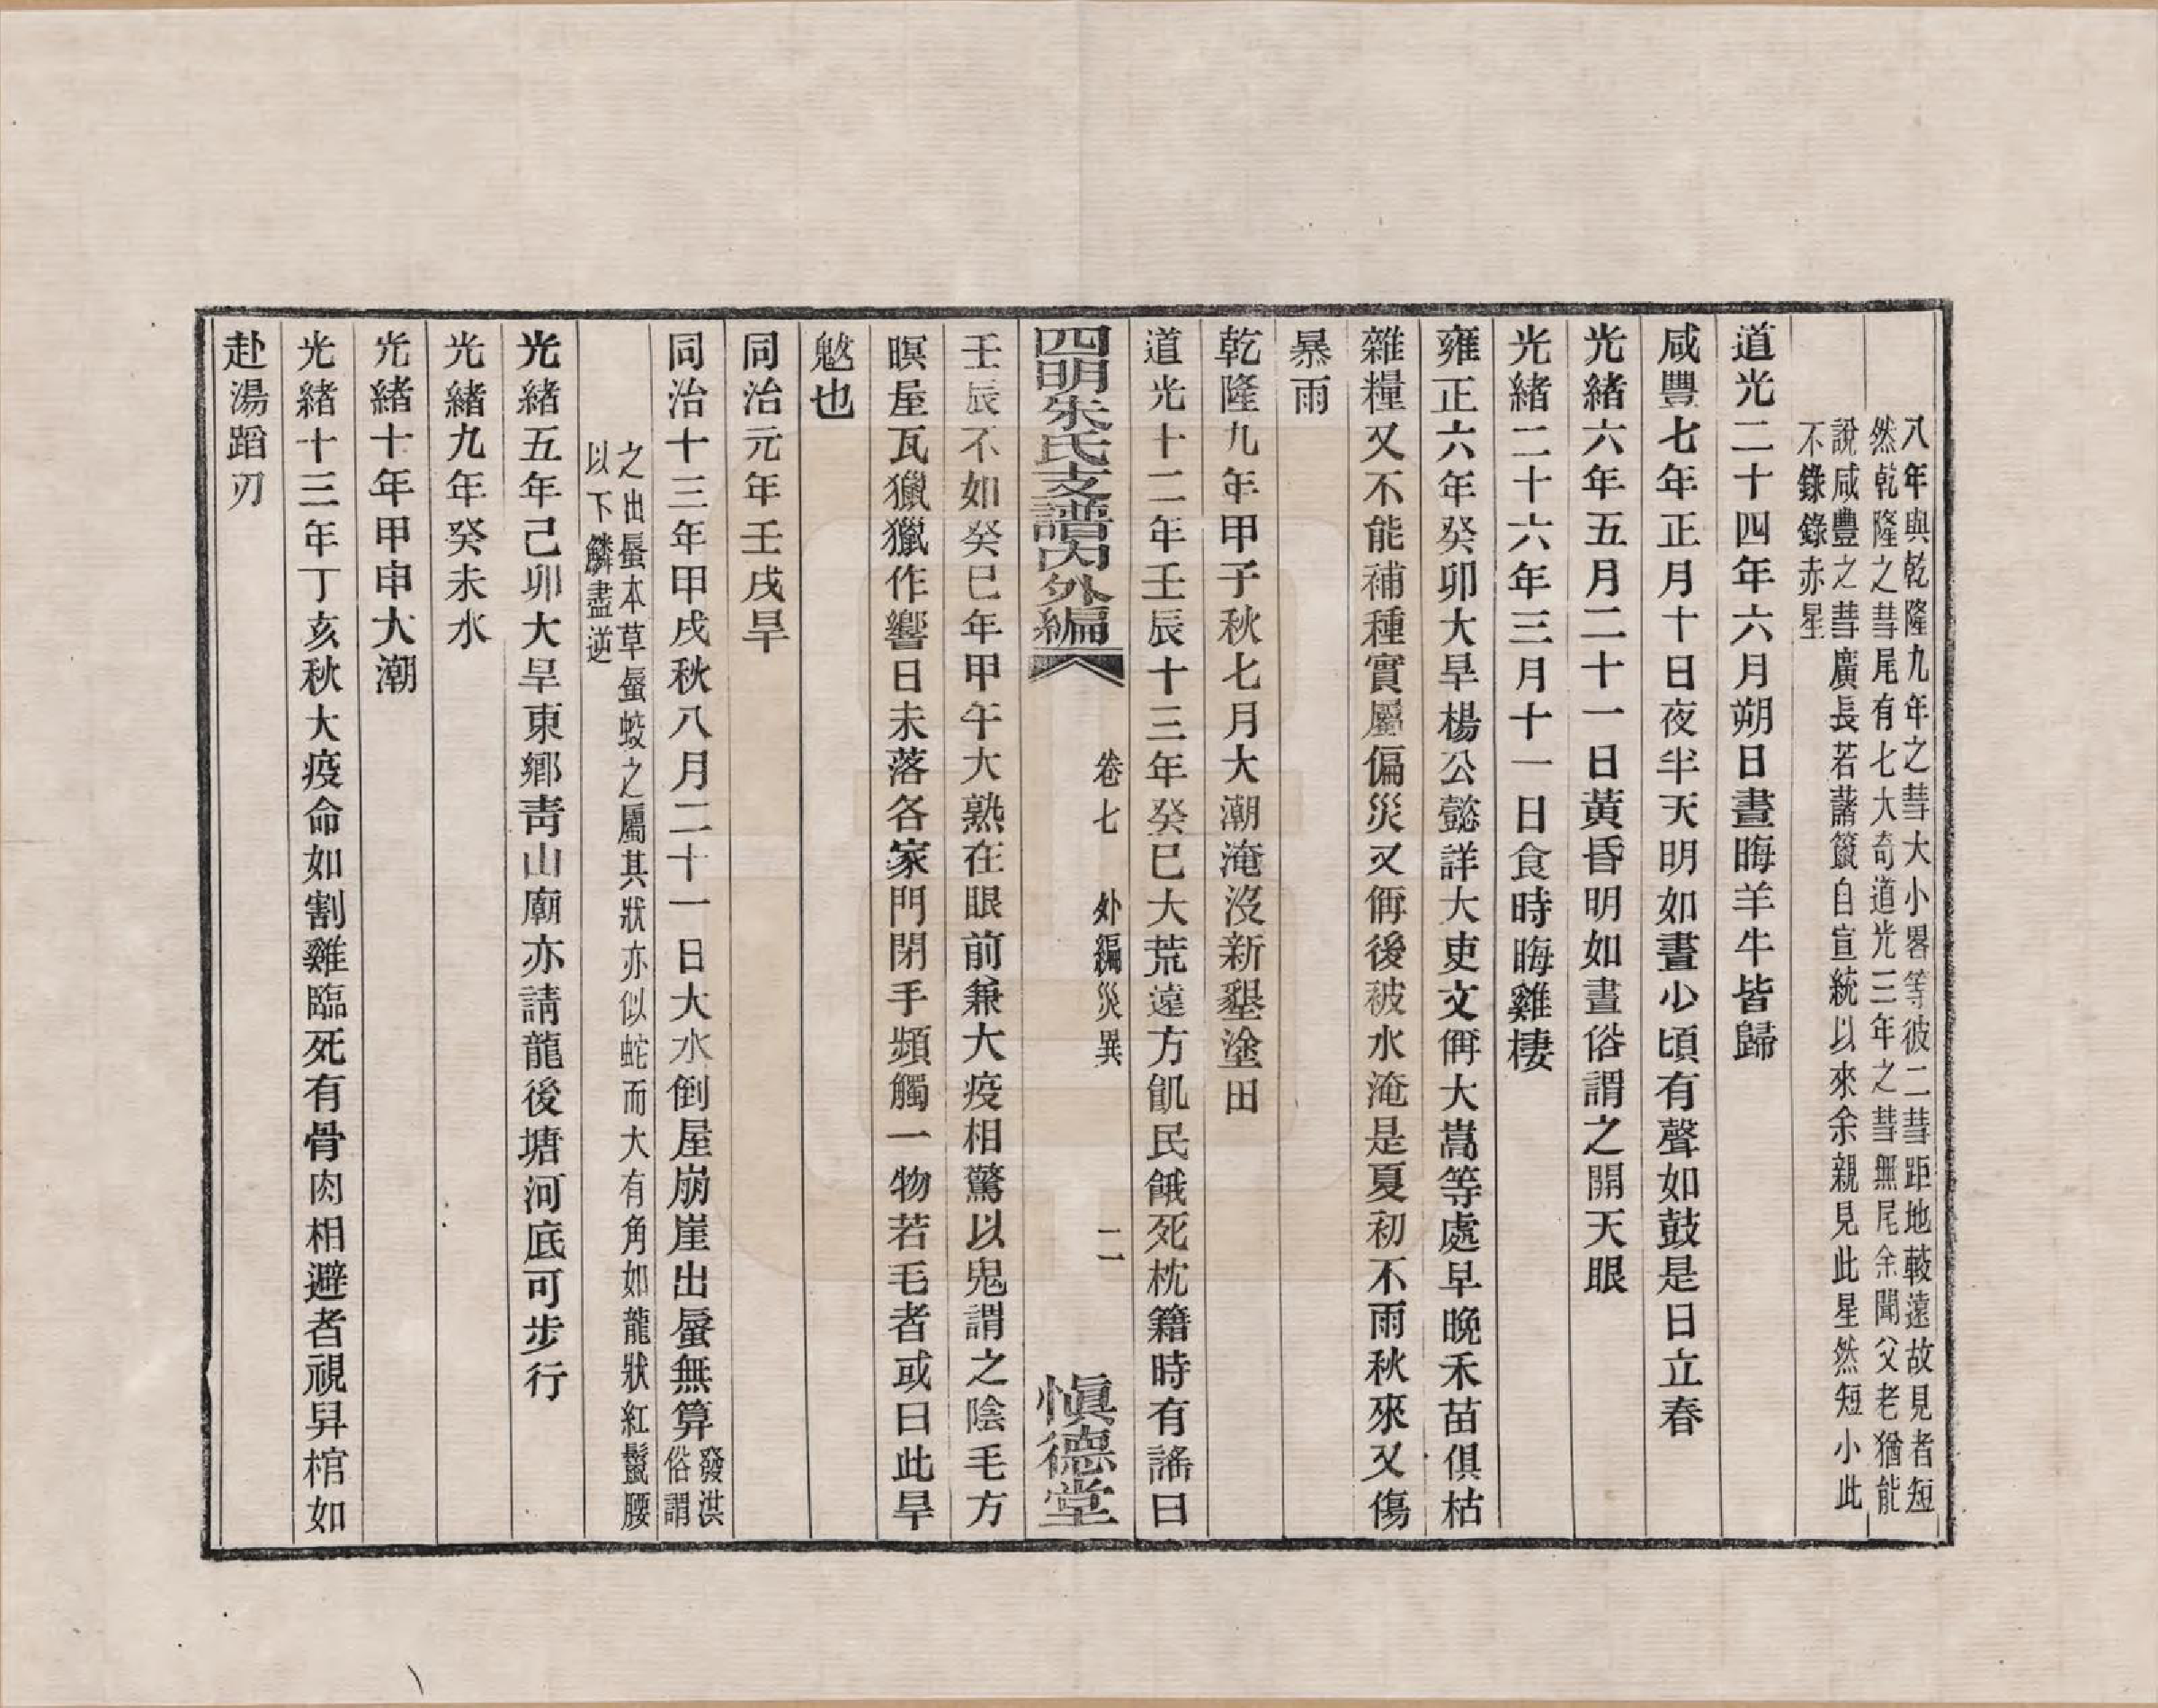 八年與乾隆九年之彗大小畧等彼二彗距地較遠故見者短
然乾隆之彗尾有七大奇道光三年之彗無尾余聞父老猶能
說咸豐之彗廣長若蘠籢自宣統以來余親見此星然短小此
不錄錄赤星
道光二十四年六月朔日晝晦羊牛皆歸
咸豐七年正月十日夜半天明如晝少頃有聲如鼓是日立春
光緒六年五月二十一日黃昏明如晝俗謂之開天眼
光緒二十六年三月十一日食時晦雞棲
雍正六年癸卯大旱楊公懿詳大吏文偁大嵩等處早晚禾苗俱枯
雜糧又不能補種實屬偏災又偁後被水淹是夏初不雨秋來又傷
暴雨
乾隆九年甲子秋七月大潮淹沒新墾塗田
道光十二年壬辰十三年癸巳大荒遠方飢民餓死枕籍時有謠曰
四明朱氏支譜內外編
卷七 外編災異
二
愼德堂
壬辰不如癸巳年甲午大熟在眼前兼大疫相驚以鬼謂之陰毛方
暝屋瓦獵獵作響日未落各家門閉手頻觸一物若毛者或曰此旱
魃也
同治元年壬戌旱
同治十三年甲戌秋八月二十一日大水倒屋崩崖出蜃無算發洪
俗謂
之出蜃本草蜃蛟之屬其狀亦似蛇而大有角如龍狀紅鬣腰
以下鱗盡逆
光緒五年己卯大旱東鄉靑山廟亦請龍後塘河底可步行
光緒九年癸未水
光緒十年甲申大潮
光緒十三年丁亥秋大疫命如割雞臨死有骨肉相避者視舁棺如
赴湯蹈刃